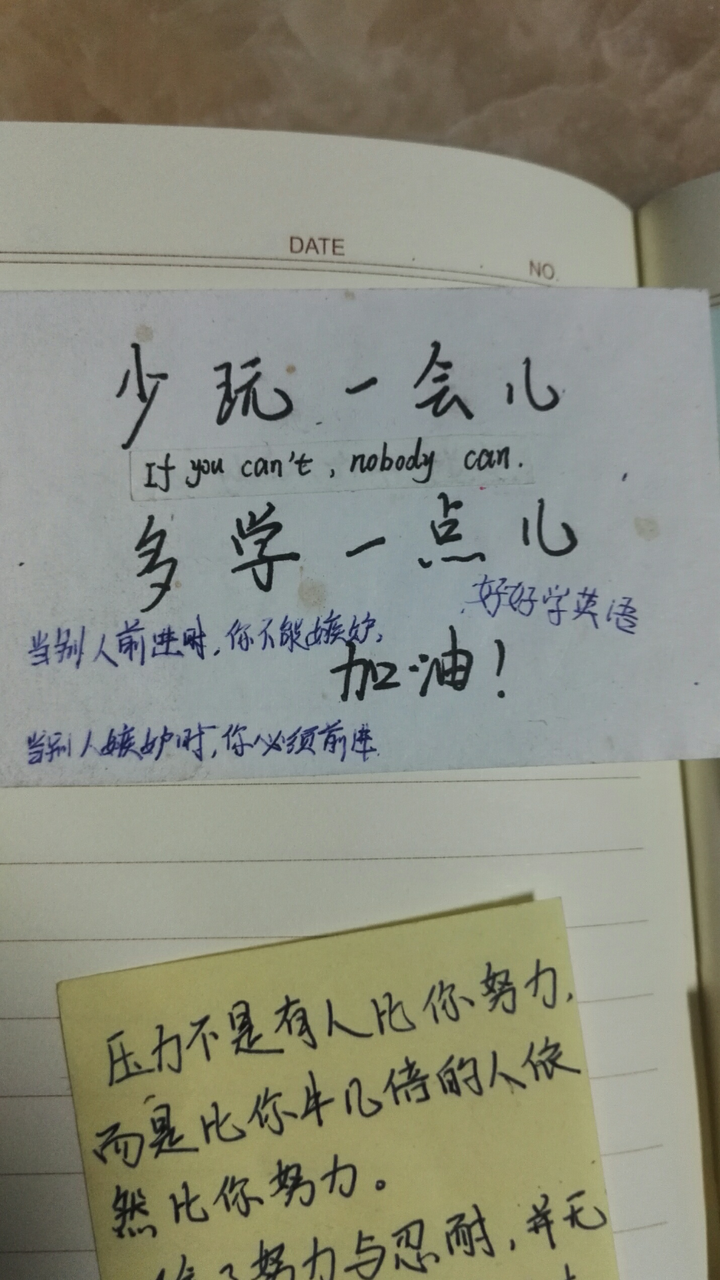 DATE
NO.
少玩一会儿
If you can't, nobody can.
多学一点儿
好好学英语
当别人前进时,你不能嫉妒,
加油!
当别人嫉妒时,你必须前进
压力不是有人比你努力,
而是比你牛几倍的人依
然比你努力。
努力与忍耐,并无